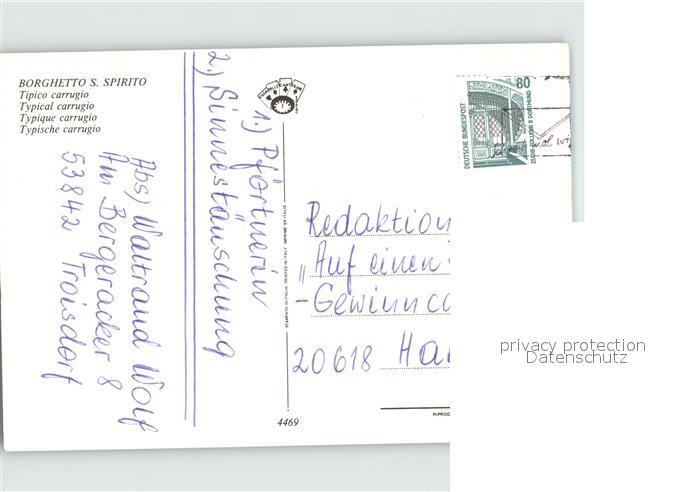 BORGHETTO S. SPIRITO
Tipico carrugio
Typical carrugio
Typique carrugio
Typische carrugio
Abs) Waltraud Wolf
Am Bergeracker 8
53842 Troisdorf
1.) Pförtnerin
2.) Sinnestäuschung
STAMPATO IN ITALIA PRINTED IN ITALY IMPRIMÉ EN ITALIE
4469
80
DEUTSCHE BUNDESPOST
ZECHE ZOLLERN II DORTMUND
Redaktion
„Auf einen
-Gewinnco
20618 Ha
REPROD
privacy protection
Datenschutz